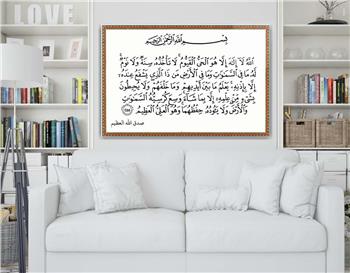 LOVE
بِسْمِ اللَّهِ الرَّحْمَٰنِ الرَّحِيمِ
اللَّهُ لَا إِلَٰهَ إِلَّا هُوَ الْحَيُّ الْقَيُّومُ لَا تَأْخُذُهُ سِنَةٌ وَلَا نَوْمٌ
لَهُ مَا فِي السَّمَاوَاتِ وَمَا فِي الْأَرْضِ مَنْ ذَا الَّذِي يَشْفَعُ عِنْدَهُ
إِلَّا بِإِذْنِهِ يَعْلَمُ مَا بَيْنَ أَيْدِيهِمْ وَمَا خَلْفَهُمْ وَلَا يُحِيطُونَ
بِشَيْءٍ مِنْ عِلْمِهِ إِلَّا بِمَا شَاءَ وَسِعَ كُرْسِيُّهُ السَّمَاوَاتِ
وَالْأَرْضَ وَلَا يَئُودُهُ حِفْظُهُمَا وَهُوَ الْعَلِيُّ الْعَظِيمُ
صدق الله العظيم